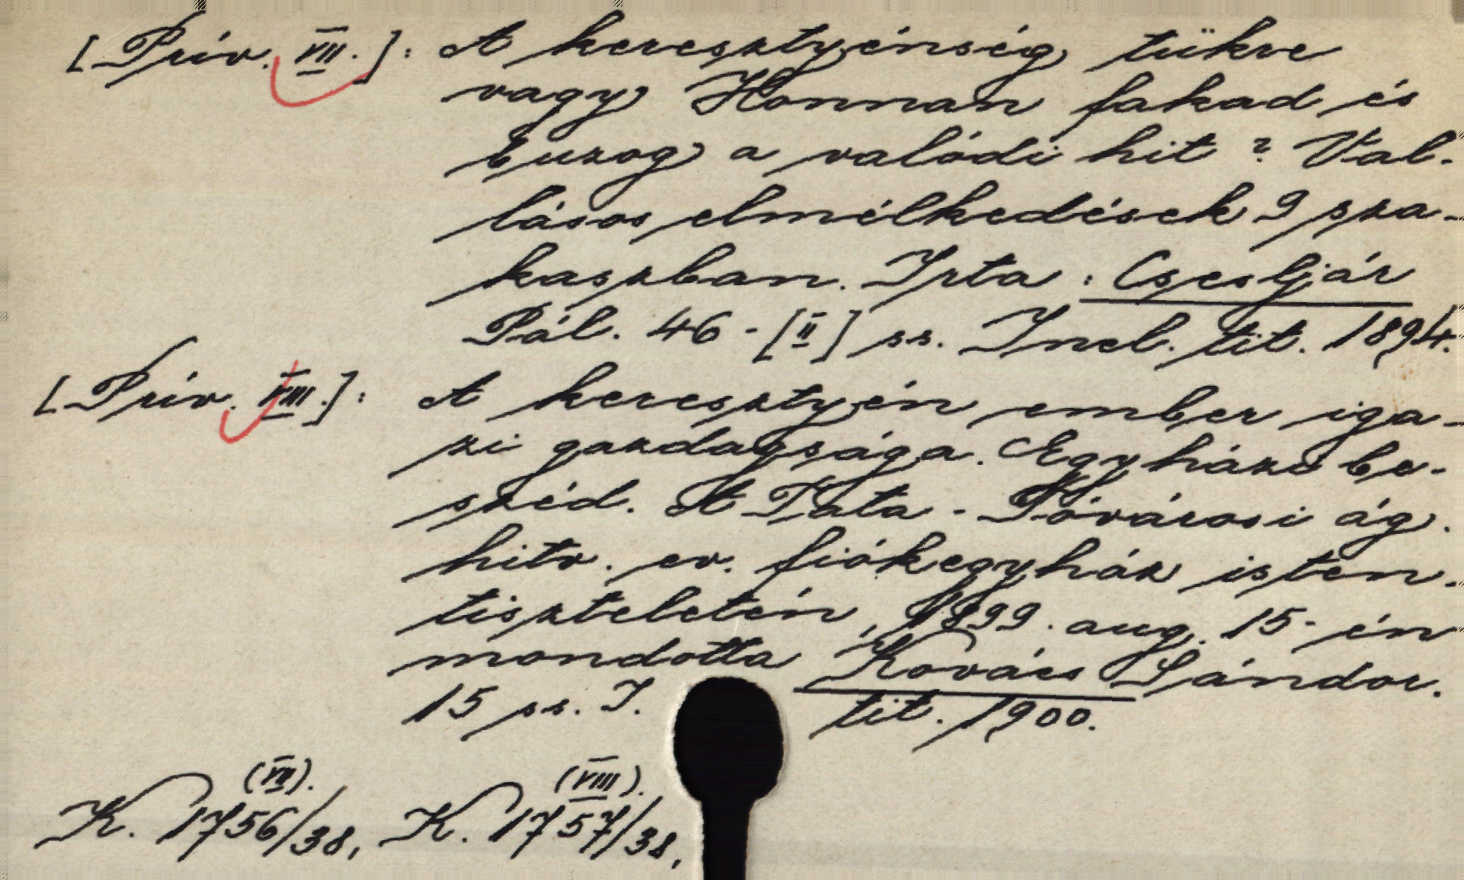 [Priv. VII.]: A keresztyénség tükre
vagy Honnan fakad és
buzog a valódi hit? Val-
lásos elmélkedések 9 sza-
kaszban. Irta: Csesljár
Pál. 46-[II] ss. Incl. tit. 1894.
[Priv. VIII.]: A keresztyén ember iga-
zi gazdagsága. Egyházi be-
széd. A Tata-Tóvárosi ág.
hitv. ev. fiókegyház isten-
tiszteletén, 1899. aug. 15-én
mondotta Kovács Sándor.
15 ss. I. tit. 1900.
(VII). (VIII).
K. 1756/38, K. 1757/38,